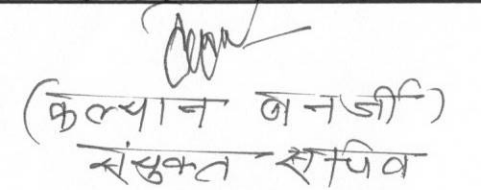 (कल्यान बनर्जी)
संयुक्त सचिव